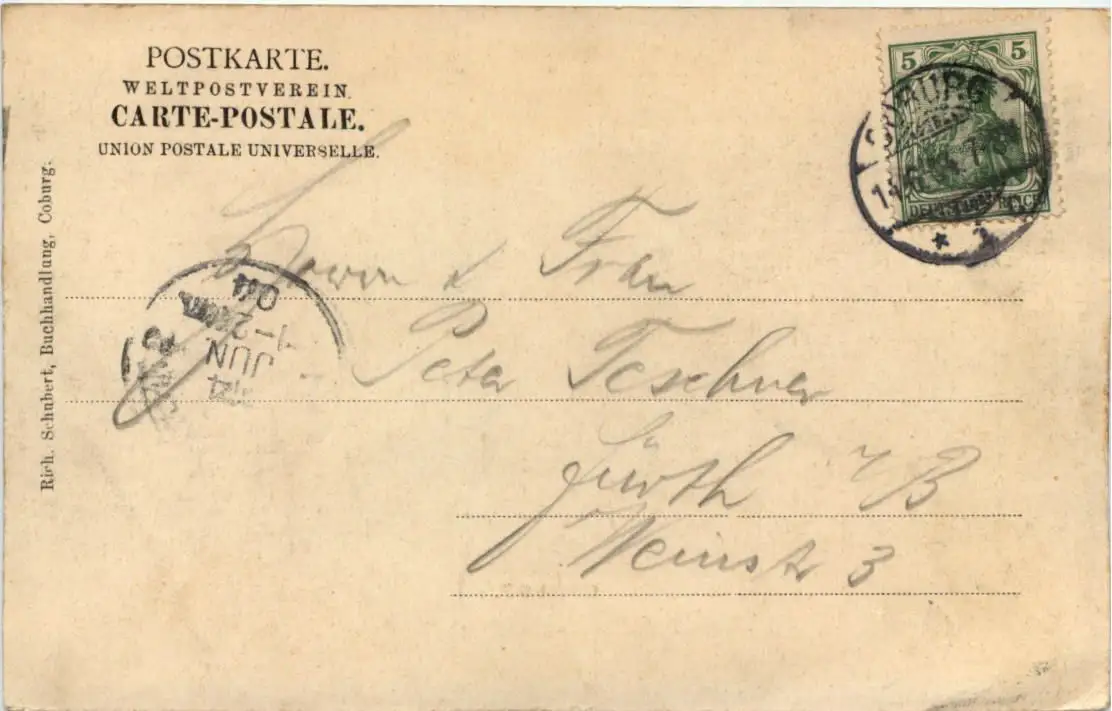 POSTKARTE.
WELTPOSTVEREIN.
CARTE-POSTALE.
UNION POSTALE UNIVERSELLE.
5 5
COBURG
DEUTSCHES REICH
Herrn & Frau
Peter Teschner
Fürth i/B
Weinstr 3
14
JUN
1-2
04
Rich. Schubert, Buchhandlung, Coburg.